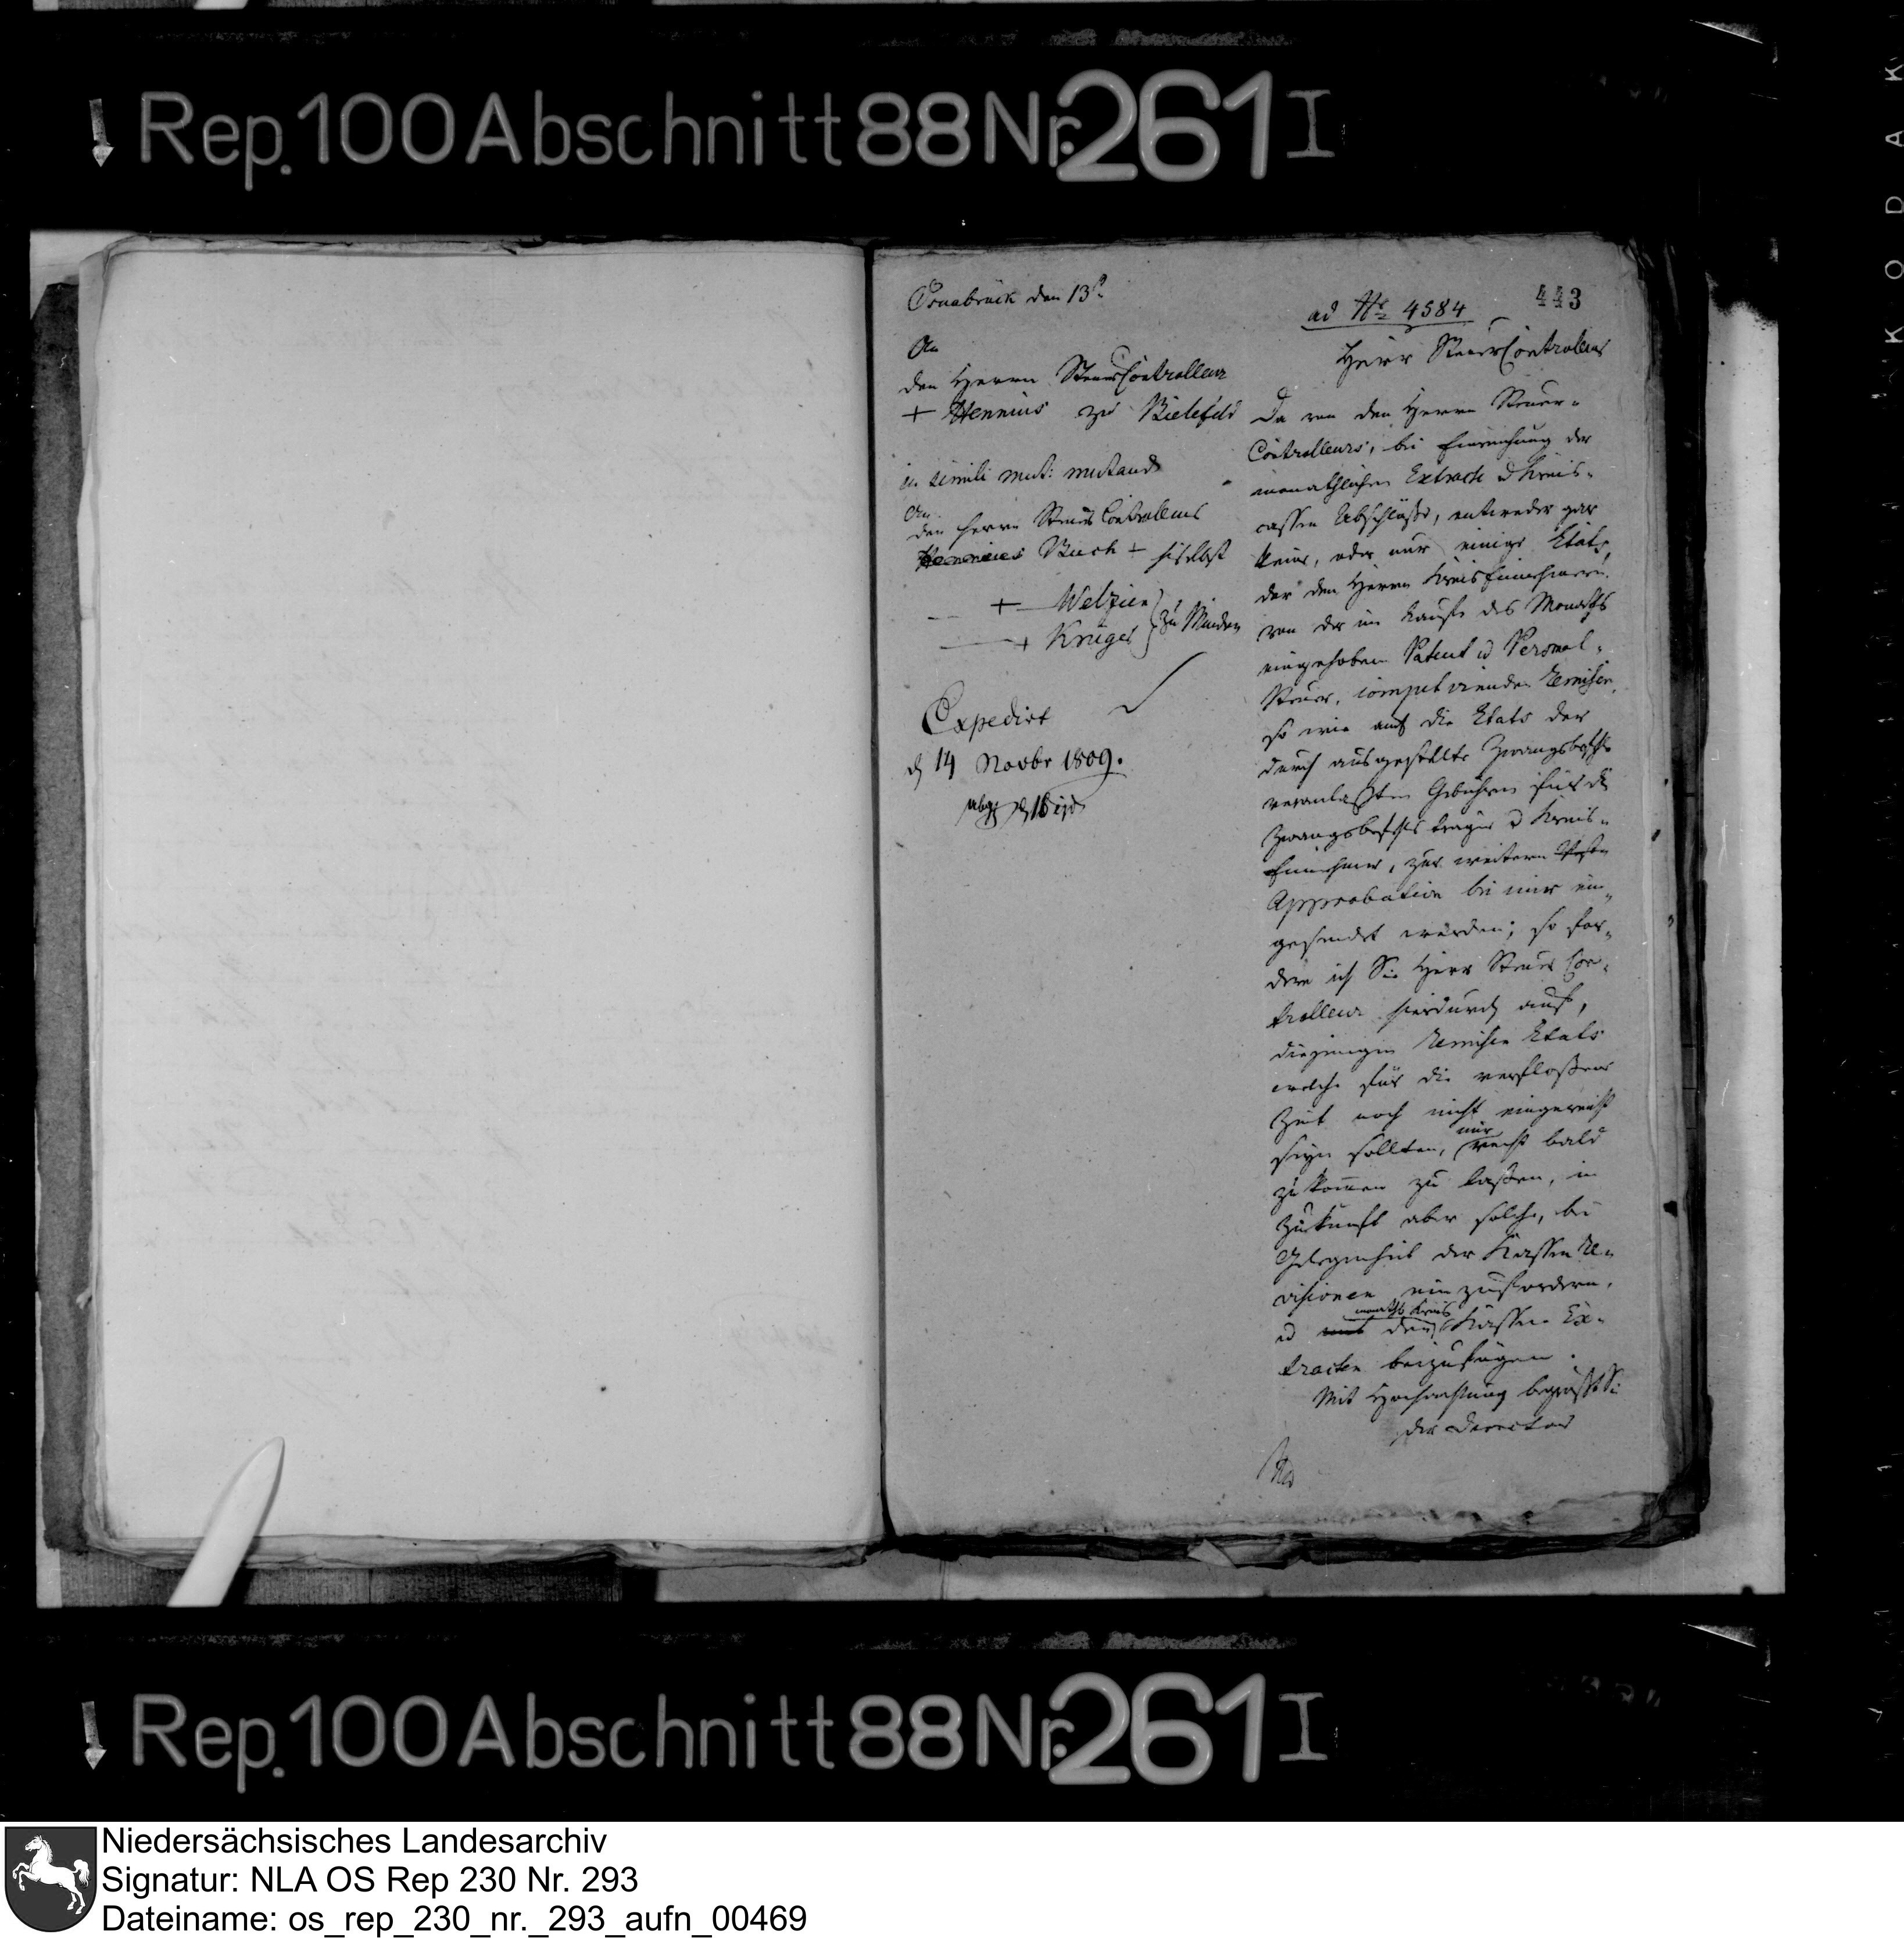 Rep. 100 Abschnitt 88 Nr. 261 I
443
Osnabrück den 13t
ad No 4584
An
den Herrn SteuerControlleur
+ Hennius zu Bielefeld
in simili mut: mutand
An
den Herrn Steuer Controlleur
Hennius Buch + hieselbst
+ Welzien
+ Krüger } zu Minden
Expedirt
d 14 Novbr 1809.
abg d 16 ejd
Herr SteuerControlleur
Da von den Herrn Steuer-
Controlleurs, bei Einreichung der
monathlichen Extracte d Kreis-
cassen Abschlüße, entweder gar
keine, oder nur einige Etats,
der den Herrn KreisEinnehmern
von der im Laufe des Monaths
eingehobenen Patent u Personal-
Steuer, competirenden Remisen,
so wie auch die Etats der
durch ausgestellte Zwangsbefehle
veranlaßten Gebühren für die
Zwangsbefehls träger u Kreis-
Einnehmer, zur weitern
Approbation bei mir ein-
gesendet werden; so for-
dere ich Sie Herr Steuer Con-
trolleur hierdurch auf,
diejenigen Remisen Etats
welche für die verfloßene
Zeit noch nicht eingereicht
seyn sollten, mir recht bald
zukommen zu laßen, in
Zukunft aber solche, bei
Gelegenheit der Kassen Re-
visionen einzufordern,
u mit den monathl Kreis Kassen Ex-
tracten beizufügen.
Mit Hochachtung begrüßt Sie
der Director
Rep. 100 Abschnitt 88 Nr. 261 I
KODAK
Niedersächsisches Landesarchiv
Signatur: NLA OS Rep 230 Nr. 293
Dateiname: os_rep_230_nr._293_aufn_00469